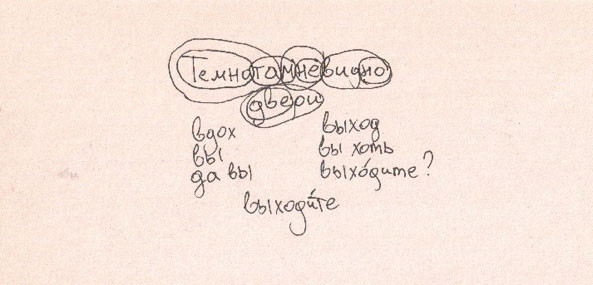 Темнотамневидно
двери
вдох
вы
да вы
выход
вы хоть
выхо́дите?
выходи́те